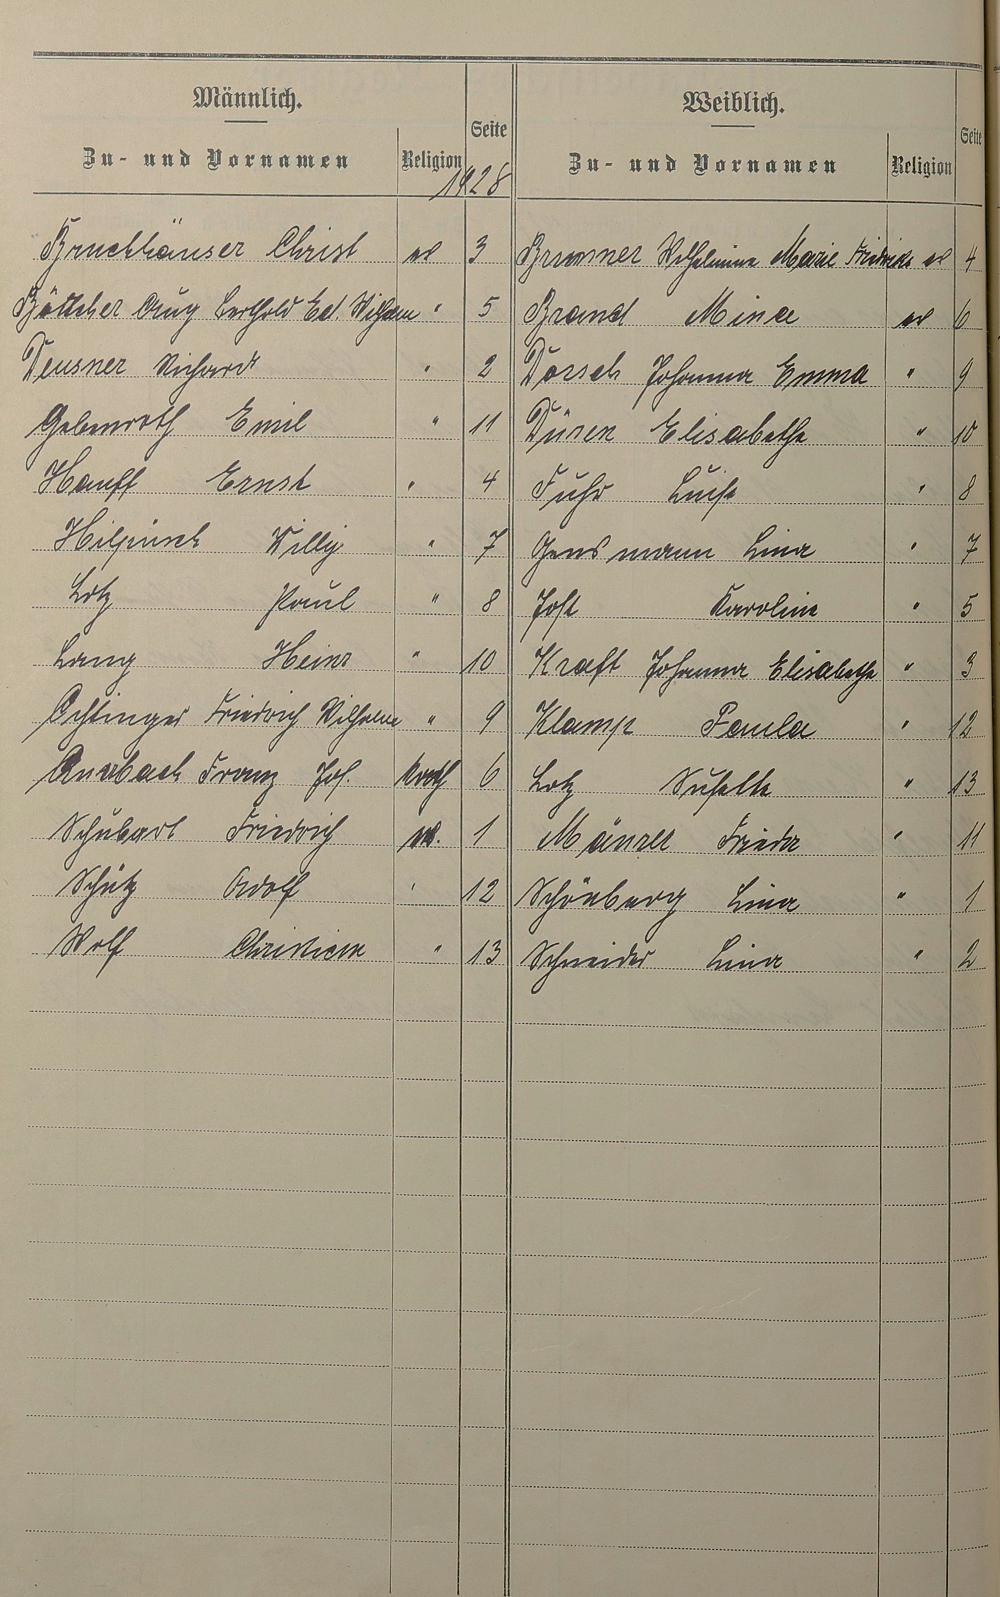 Männlich.
Zu- und Vornamen
Religion
Seite
1928
Bruchhäuser Christ ev 3
Böttcher Aug Berthold Ed. Wilhelm " 5
Deusner Richard " 2
Gebenroth Emil " 11
Hanff Ernst " 4
Hilpüsch Willy " 7
Lotz Paul " 8
Lang Heinz " 10
Friedrich Wilhelm " 9
Franz Jos. kath 6
Schubart Friedrich ev. 1
Schütz Adolf " 12
Wolf Christian " 13
Weiblich.
Zu- und Vornamen
Religion
Seite
Brunner Wilhelmine Marie Friedricke ev 4
Brand Mina ev 6
Dorsch Johanna Emma " 9
Düren Elisabethe " 10
Fuhr Luise " 8
Gensmann Lina " 7
Jost Karoline " 5
Kraft Johanna Elisabethe " 3
Klamp Paula " 12
Lotz " 13
Frieda " 11
Schönberg Lina " 1
Schneider Lina " 2